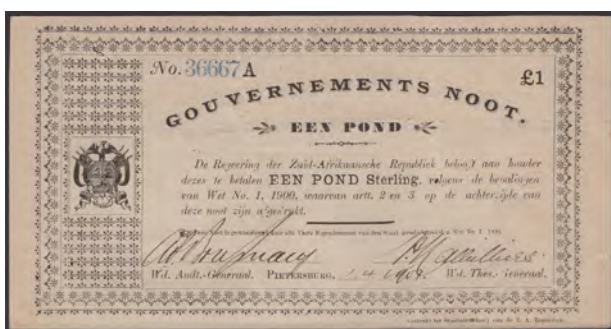 No. 36667 A
£1
GOUVERNEMENTS NOOT.
EEN POND
De Regeering der Zuid-Afrikaansche Republiek belooft aan houder
dezes te betalen EEN POND Sterling, volgens de bepalingen
van Wet No. 1, 1900, waarvan artt. 2 en 3 op de achterzijde van
deze noot zijn afgedrukt.
Wd. Audt.-Generaal. PIETERSBURG, 1.4.1901. Wd. Thes.-Generaal.